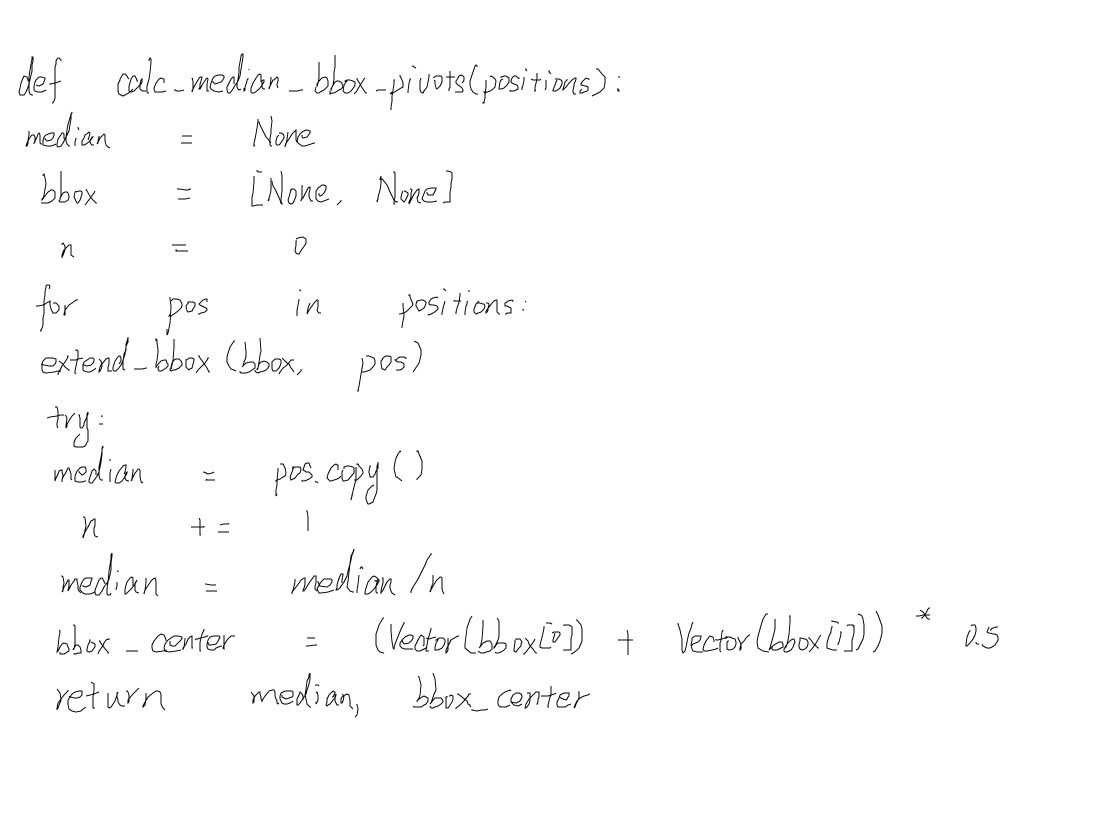 def calc_median_bbox_pivots(positions):
median = None
bbox = [None, None]
n = 0
for pos in positions:
extend_bbox(bbox, pos)
try:
median = pos.copy()
n += 1
median = median/n
bbox_center = (Vector(bbox[0]) + Vector(bbox[1])) * 0.5
return median, bbox_center